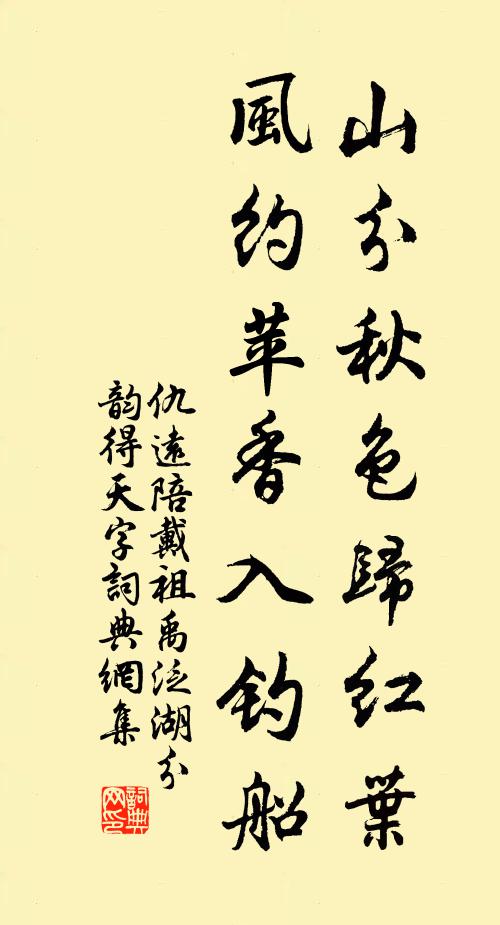 山分秋色歸紅葉
風約苹香入钓船
仇遠陪戴祖禹泛湖分
韵得天字詞典網集
詞典网印